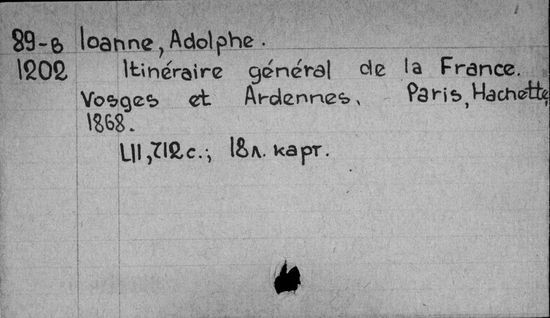 89-в Ioanne, Adolphe.
1202 Itinéraire général de la France.
Vosges et Ardennes. Paris, Hachette,
1868.
LII, 712 с.; 18 л. карт.